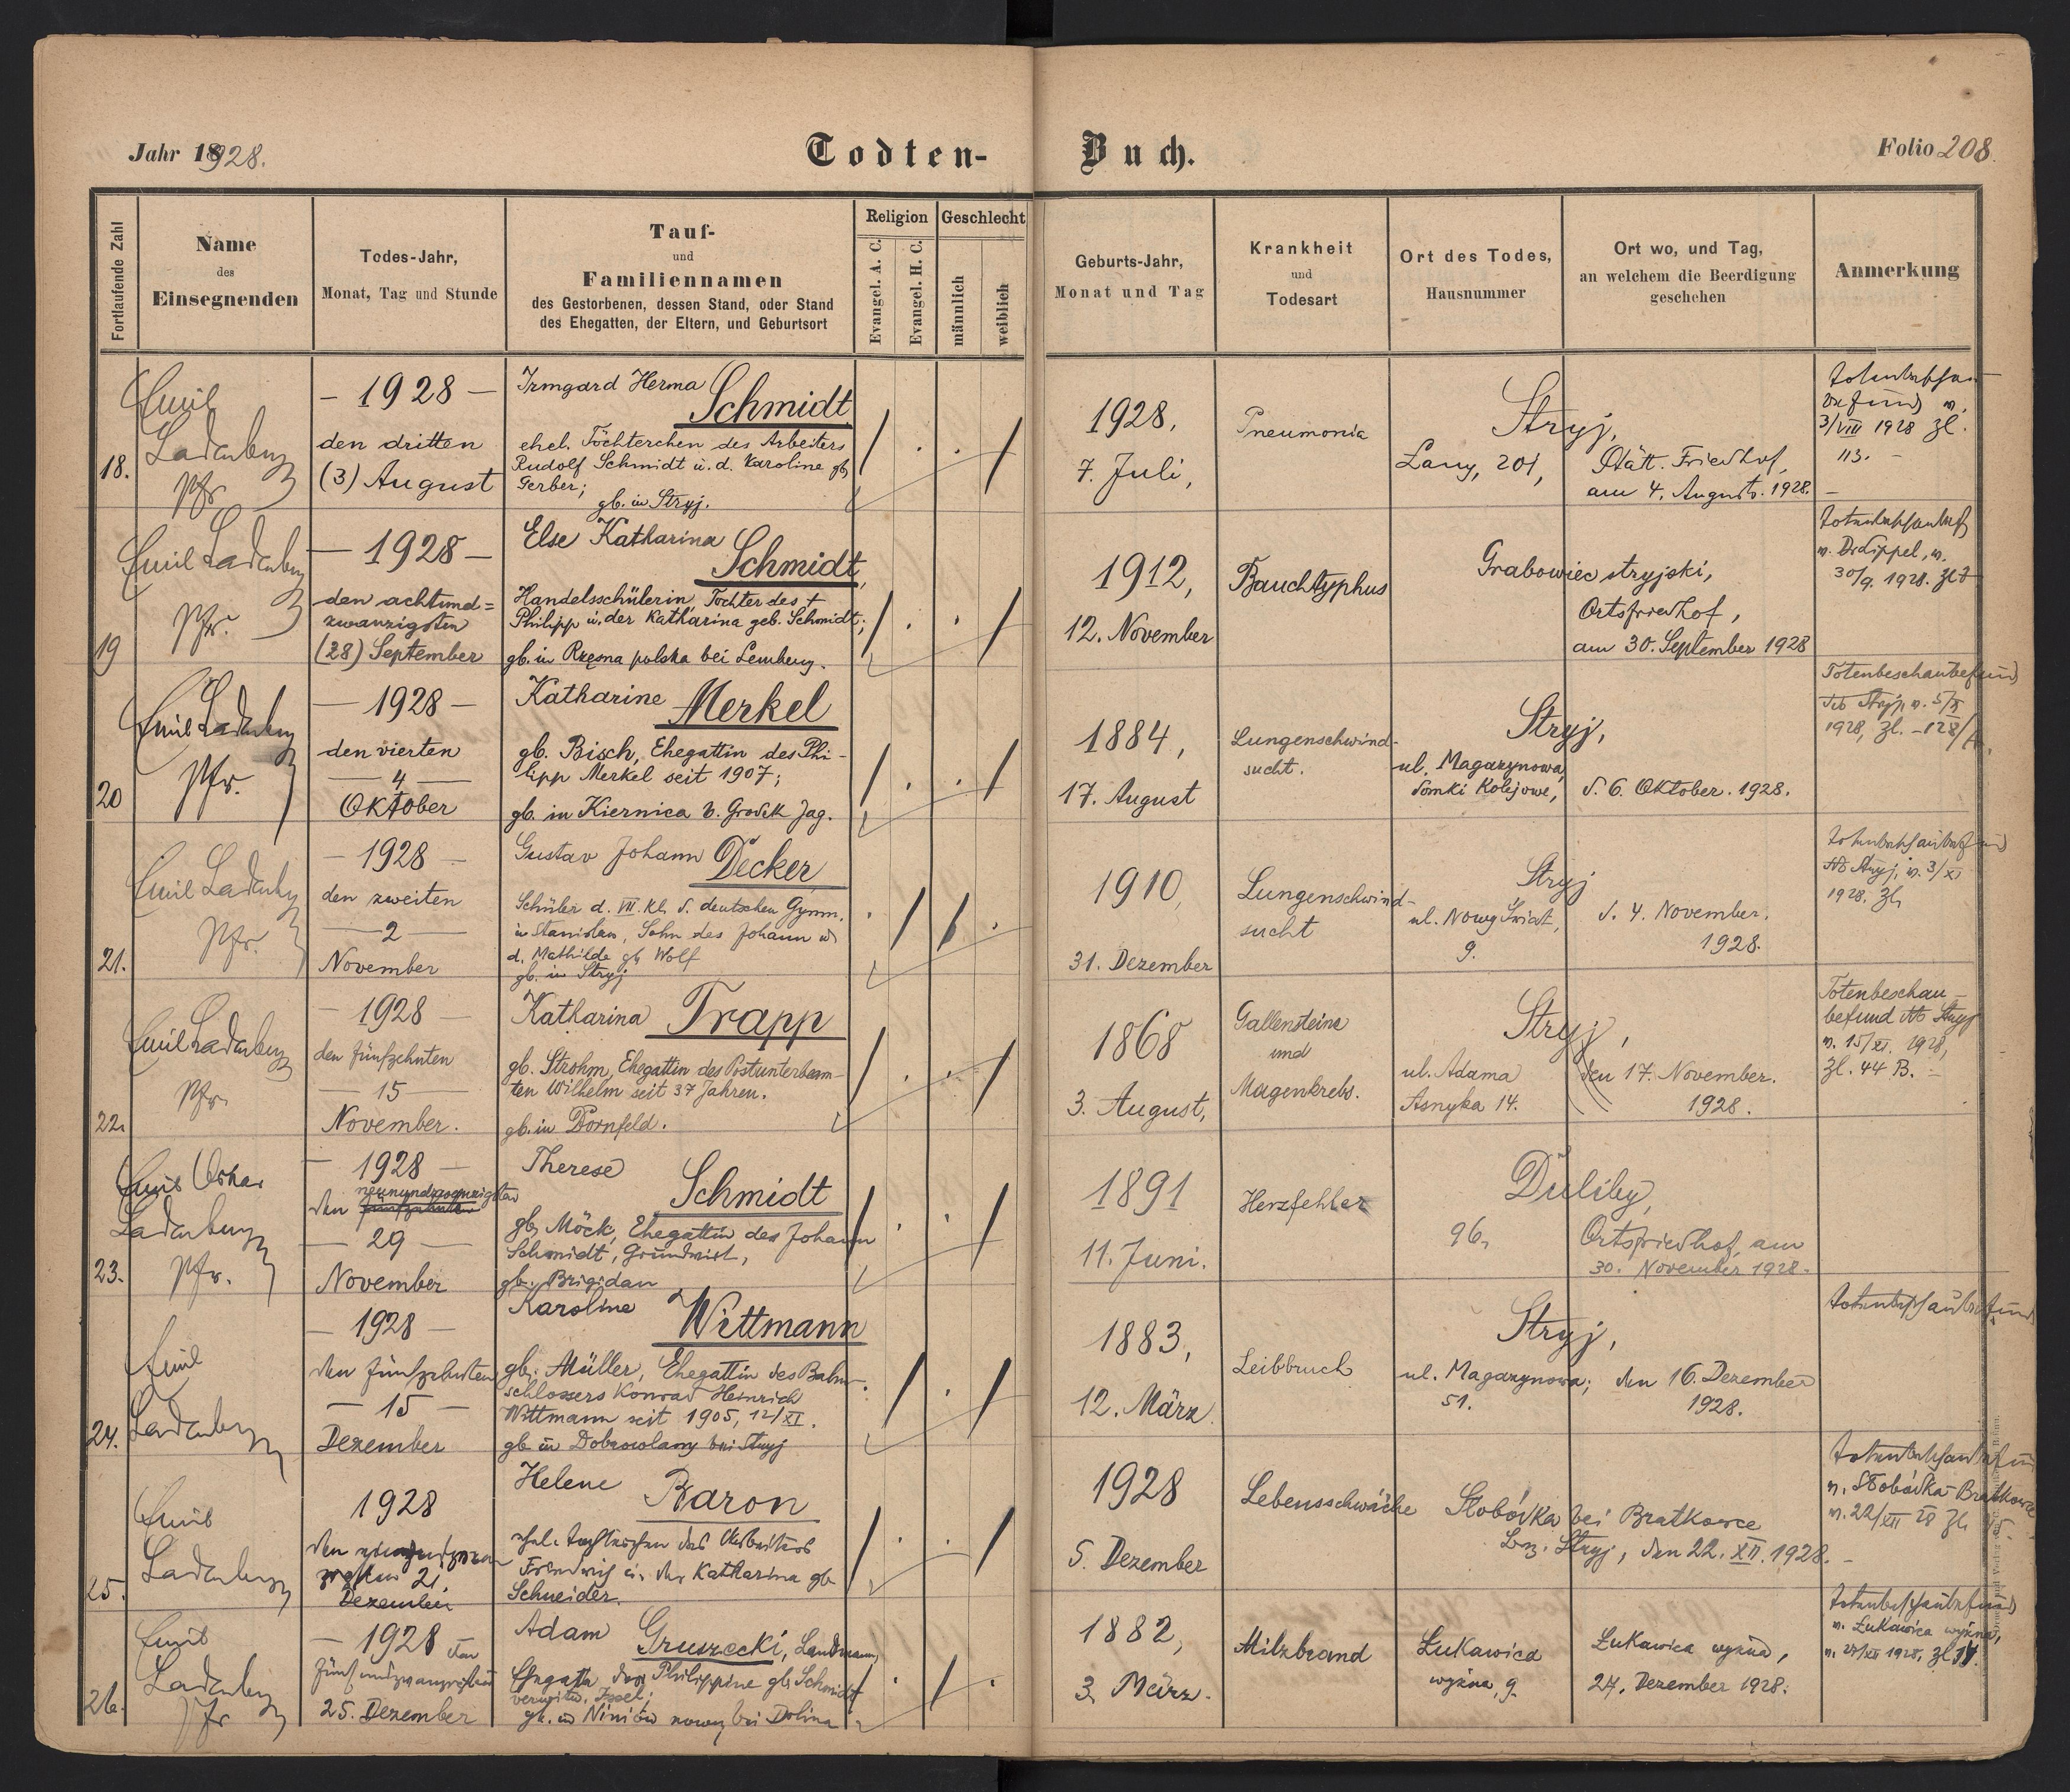 Jahr 1928.
Todten-Buch.
Folio 208.
Fortlaufende Zahl
Name
des
Einsegnenden
Todes-Jahr,
Monat, Tag und Stunde
Tauf-
und
Familiennamen
des Gestorbenen, dessen Stand, oder Stand
des Ehegatten, der Eltern, und Geburtsort
Religion
Evangel. A. C.
Evangel. H. C.
Geschlecht
männlich
weiblich
Geburts-Jahr,
Monat und Tag
Krankheit
und
Todesart
Ort des Todes,
Hausnummer
Ort wo, und Tag,
an welchem die Beerdigung
geschehen
Anmerkung
18.
Emil
Ladenberger
Pfr.
– 1928 –
den dritten
(3) August
Irmgard Herma
Schmidt
ehel. Töchterchen des Arbeiters
Rudolf Schmidt u. d. Karoline gb
Gerber;
gb. in Stryj.
1928,
7. Juli,
Pneumonia
Stryj,
Lany, 201,
Städt. Friedhof,
am 4. August. 1928.
Totenbeschau-
befund v.
3/VIII 1928 Zl.
113. –
19
Emil Ladenberger
Pfr.
– 1928 –
den achtund=
zwanzigsten
(28) September
Else Katharina
Schmidt,
Handelsschülerin Tochter des +
Philipp u. der Katharina geb. Schmidt;
gb. in Rzęsna polska bei Lemberg.
1912,
12. November
Bauchtyphus
Grabowiec stryjski,
Ortsfriedhof,
am 30. September 1928
v. Dr Lippel, v.
30/9. 1928. Zl
20
Emil Ladenberger
Pfr.
– 1928 –
den vierten
– 4 –
Oktober
Katharine Merkel
gb. Bisch, Ehegattin des Phi-
lipp Merkel seit 1907;
gb. in Kiernica b. Grodek Jag.
1884,
17. August
Lungenschwind-
sucht.
Stryj,
ul. Magazynowa,
domki Kolejowe,
d. 6. Oktober. 1928.
Totenbeschaubefund
Stryj v. 5/X
1928, Zl. – 128/
21.
Emil Ladenberger
Pfr.
– 1928 –
den zweiten
– 2 –
November
Gustav Johann Decker
Schüler d. VII. Kl. d. deutschen Gymn.
in Stanislau, Sohn des Johann u.
d. Mathilde gb Wolf
gb. in Stryj
1910,
31. Dezember
Lungenschwind-
sucht
Stryj
ul. Nowy Świat,
9.
d. 4. November.
1928.
Totenbeschaubefund
Stryj, v. 3/XI
1928. Zl.
22.
Emil Ladenberger
Pfr.
– 1928 –
den fünfzehnten
– 15 –
November.
Katharina Trapp
gb. Strohm, Ehegattin des Postunterbeam-
ten Wilhelm seit 37 Jahren.
gb. in Dornfeld.
1868
3. August,
Gallensteine
und
Magenkrebs.
Stryj,
ul. Adama
Asnyka 14.
den 17. November.
1928.
Totenbeschau-
befund Stryj
v. 15/XI. 1928,
Zl. 44 B. –
23.
Emil Oskar
Ladenberger
Pfr.
– 1928 –
neunundzwanzigsten
den fünfzehnten
– 29 –
November
Therese Schmidt
gb. Möck, Ehegattin des Johann
Schmidt, Grundwirt,
gb. Brigidau
1891
11. Juni.
Herzfehler
Duliby,
96,
Ortsfriedhof, am
30. November 1928.
24.
Emil
Ladenberger
– 1928 –
den fünfzehnten
– 15 –
Dezember
Karoline Wittmann
gb. Müller, Ehegattin des Bahn-
schlossers Konrad Heinrich
Wittmann seit 1905, 12/XI.
gb in Dobrowlany bei Stryj
1883,
12. März
Leibbruch
Stryj,
ul. Magazynowa;
51.
den 16. Dezember
1928.
Totenbeschaubefund
25.
Emil
Ladenberger
1928
den einundzwan
zigsten 21.
Dezember
Helene Baron
ehel. Töchterchen des Arbeiters
Friedrich u. der Katharina gb
Schneider.
1928
5. Dezember
Lebensschwäche
Słobódka bei Bratkowce
Bez. Stryj, den 22. XII. 1928. –
Totenbeschaubefund
v. Słobódka-Bratkowce
v. 22/XII 28 Zl. 15.
26.
Emil
Ladenberger
Pfr
– 1928 den
fünfundzwanzigsten
25. Dezember
Adam Gruszecki, Landmann
Ehegatte der Philippine gb. Schmidt
verwitw.
gb. in Niniów nowy bei Dolina
1882,
3. März.
Milzbrand
Łukawica
wyżna, 9.
Łukawica wyżna,
27. Dezember 1928.
Totenbeschaubefund
v. Łukawica wyżna,